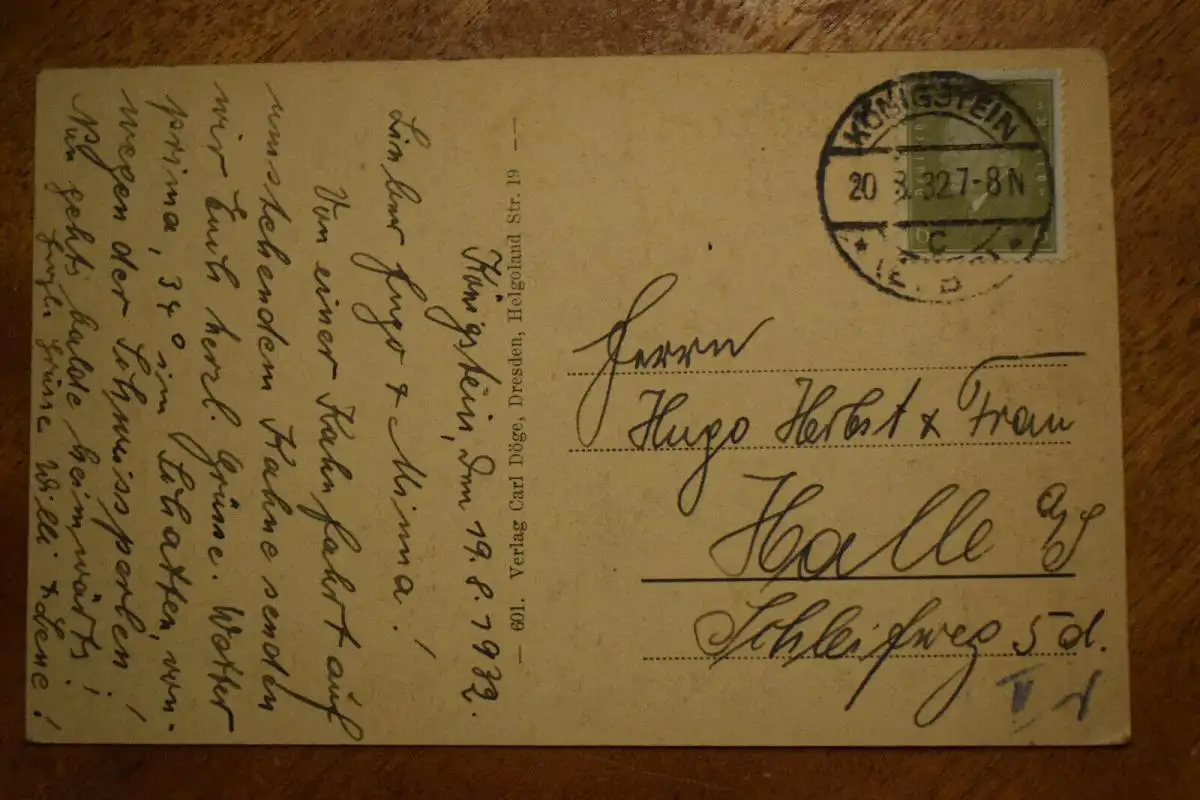 Königstein, den 19.8.1932.
Lieber Hugo & Minna!
Von einer Kahnfahrt auf
umstehendem Kahne senden
wir Euch herzl. Grüsse. Wetter
prima, 34° im Schatten, von-
wegen der Schweissperlen!
Nun gehts balde heimwärts!
Herzl. Grüsse Willi & Lene!
— 601. Verlag Carl Döge, Dresden, Helgoland Str. 19 —
KÖNIGSTEIN
20 8. 32 7-8 N
* C *
Herrn
Hugo Herbst & Frau
Halle a/S
Schleifweg 5d.